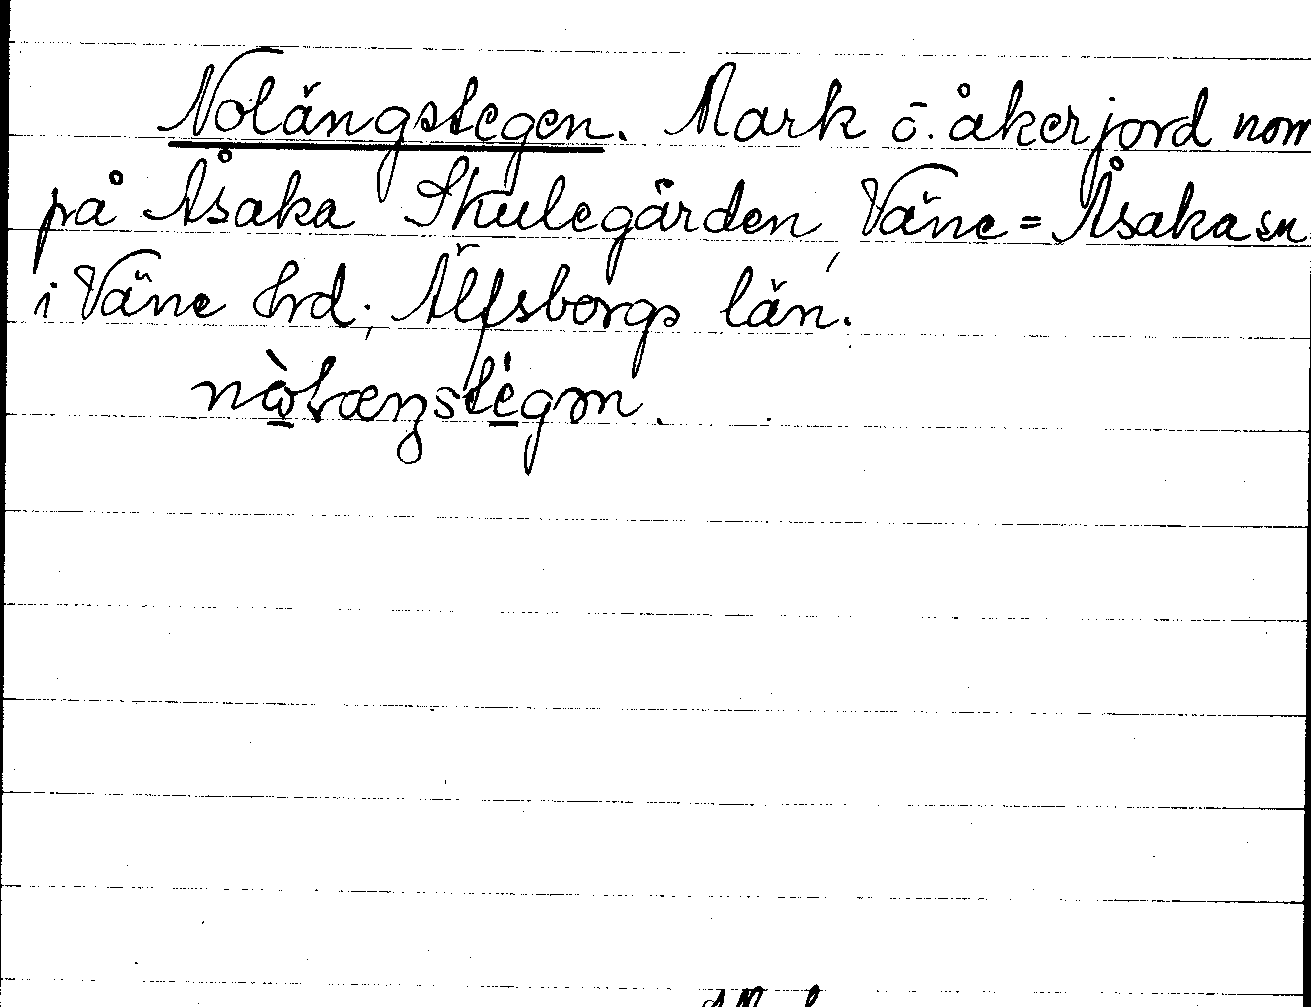 Nolängstegen. Mark o. åkerjord nom
på Åsaka Skulegården, Väne=Åsaka sn
i Väne hrd; Älfsborgs län.